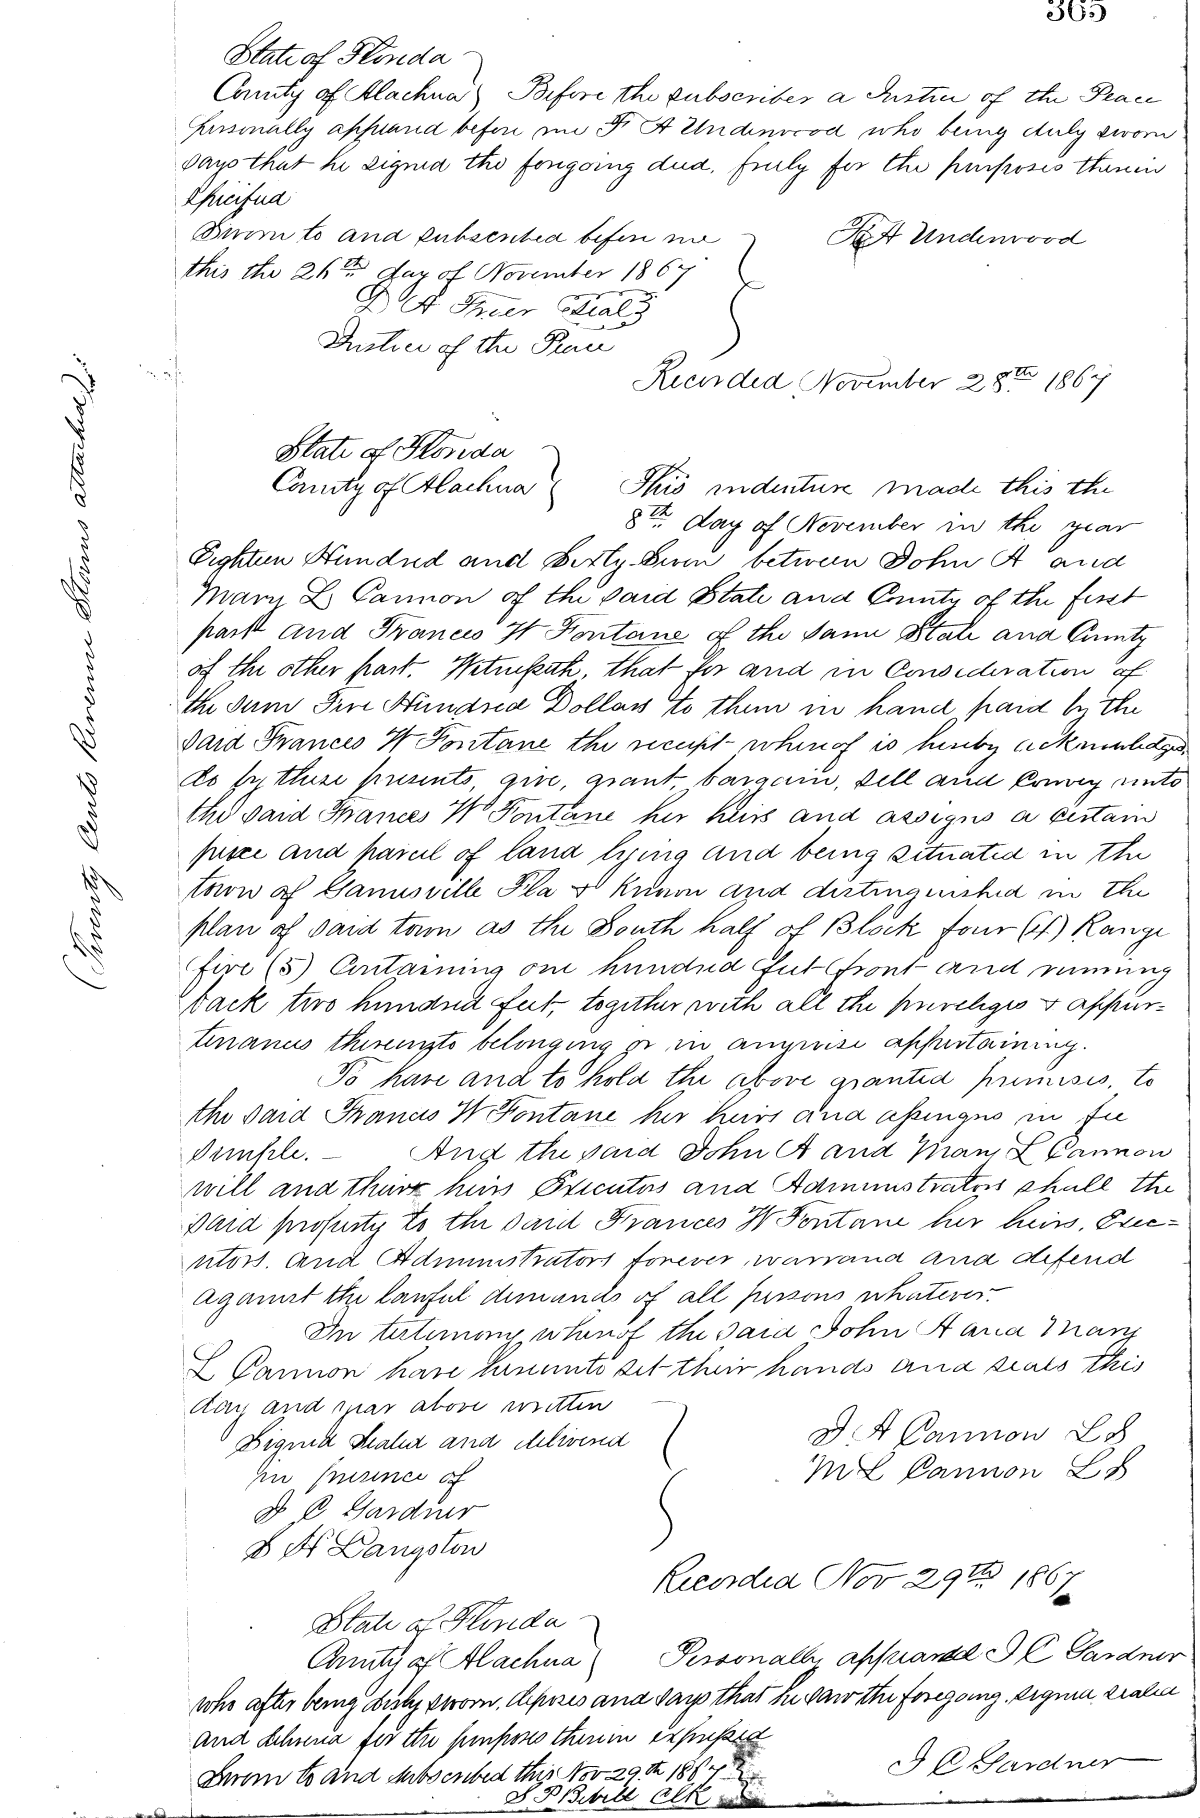 365
State of Florida
County of Alachua } Before the subscriber a Justice of the Peace
personally appeared before me F A Underwood who being duly sworn
says that he signed the foregoing deed, freely for the purposes therein
specified
Sworn to and subscribed before me
F A Underwood
this the 26th day of November 1867
D A Frier {Seal}
Justice of the Peace
Recorded November 28th 1867
State of Florida
County of Alachua } This indenture made this the
8th day of November in the year
Eighteen Hundred and Sixty-Seven between John A and
Mary L Cannon of the said State and County of the first
part and Frances W Fontane of the same State and County
of the other part. Witnesseth, that for and in Consideration of
the sum Five Hundred Dollars to them in hand paid by the
said Frances W Fontane the receipt whereof is hereby acknowledged,
do by these presents, give, grant, bargain, sell and convey unto
the said Frances W Fontane her heirs and assigns a certain
piece and parcel of land lying and being situated in the
town of Gainesville Fla & known and distinguished in the
plan of said town as the South half of Block four (4) Range
five (5) Containing one hundred feet front and running
back two hundred feet, together with all the priveliges & appur-
tenances thereunto belonging or in anywise appertaining.
To have and to hold the above granted premises, to
the said Frances W Fontane her heirs and assingns in fee
simple. — And the said John A and Mary L Cannon
will and their heirs Executors and Administrators shall the
said property to the said Frances W Fontane her heirs, Exec-
utors. and Administrators forever warrand and defend
against the lawful demands of all persons whatever.
In testimony whereof the said John A and Mary
L Cannon have hereunto set their hands and seals this
day and year above written
Signed Sealed and delivered
J. A Cannon L S
in presence of
M L Cannon L S
J C Gardner
S N Langston
Recorded Nov 29th 1867
State of Florida
County of Alachua } Personally appeared J C Gardner
who after being duly sworn, deposes and says that he saw the foregoing, signed sealed
and delivered for the purposes therein expressed
J C Gardner
Sworn to and subscribed this Nov 29th 1867
Clk
(Twenty Cents Revenue Stamps attached)